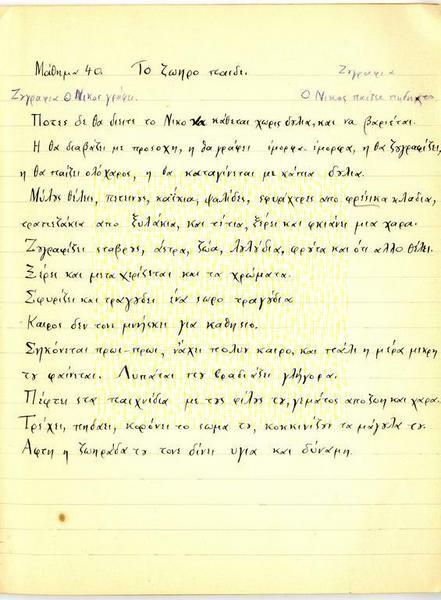 Μάθημα 40. Το ζωηρο πεδι. Ζυγραφια
Ζυγραφια Ο Νικος γράφι. Ο Νικος πεζι πιδηχτο
Ποτες δε θα διιτε το Νικο να κάθεται χωρις δυλια, και να βαριεται.
Η θα διαβάζι με προσοχη, η θα γράφει όμορφα όμορφα, η θα ζυγραφίζει,
η θα παίζι ολόχαρος, η θα καταγίνεται με κάπια δυλια.
Μύλυς θέλις, πετινυς, καΐκια, ψαλίδες, σφυρίχτρες απο φρέσκα κλαδια,
τραπεζάκια απο ξυλάκια, και σπίτια, ξέρει και φκιάνει μια χαρα.
Ζυγραφίζει σταβρυς, άστρα, ζώα, λυλύδια, φρύτα και ότι αλλο θέλει.
Ξέρει και μεταχιρίζεται και τα χρώματα.
Σφυρίζει και τραγυδει ένα σωρο τραγύδια
Καιρος δεν του μινήσκει για καθησιο.
Σηκόνεται πρωι-πρωι, νάχει πολυν καιρο, και πάλι η μέρα μικρη
τυ φαίνεται. Λυπάται πυ βραδιάζει γλήγορα.
Πέφτει στα παιχνίδια με τυς φίλυς τυ, γεμάτος απο ζωη και χαρα.
Τρέχει, πηδαει, κορόνει το σωμα τυ, κοκκινίζυν τα μάγυλα τυ.
Αφτη η ζωηράδα τυ τονε δίνει υγια και δύναμη.